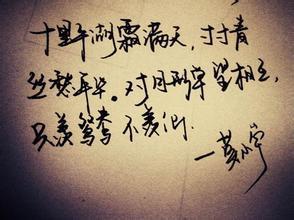 十里平湖霜满天,寸寸青
丝愁年华。对月形单望相互,
只羡鸳鸯不羡仙.
一